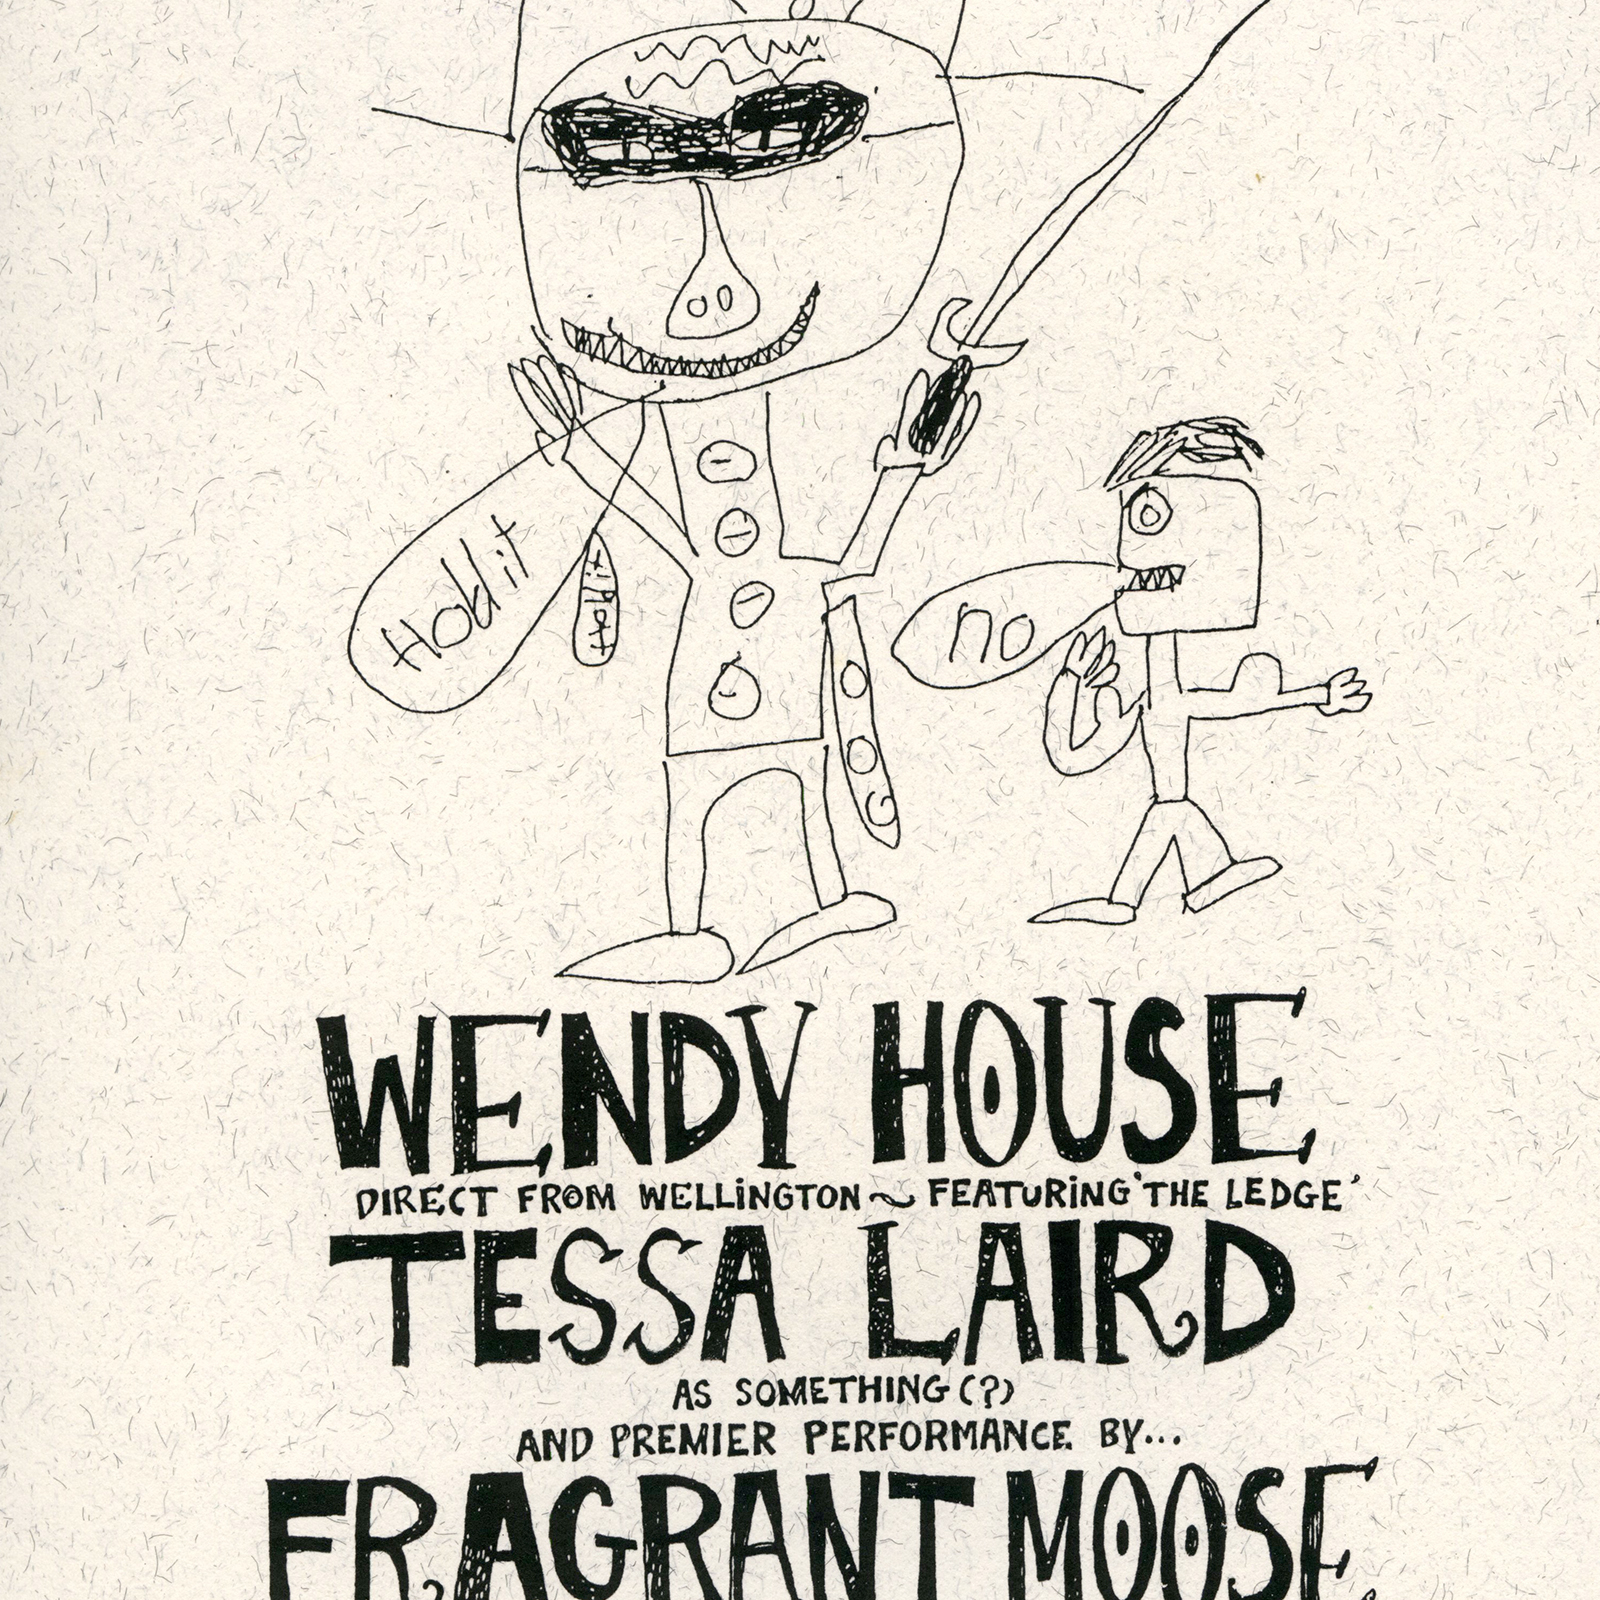 Hold it
no
WENDY HOUSE
DIRECT FROM WELLINGTON ~ FEATURING 'THE LEDGE'
TESSA LAIRD
AS SOMETHING (?)
AND PREMIER PERFORMANCE BY...
FRAGRANT MOOSE